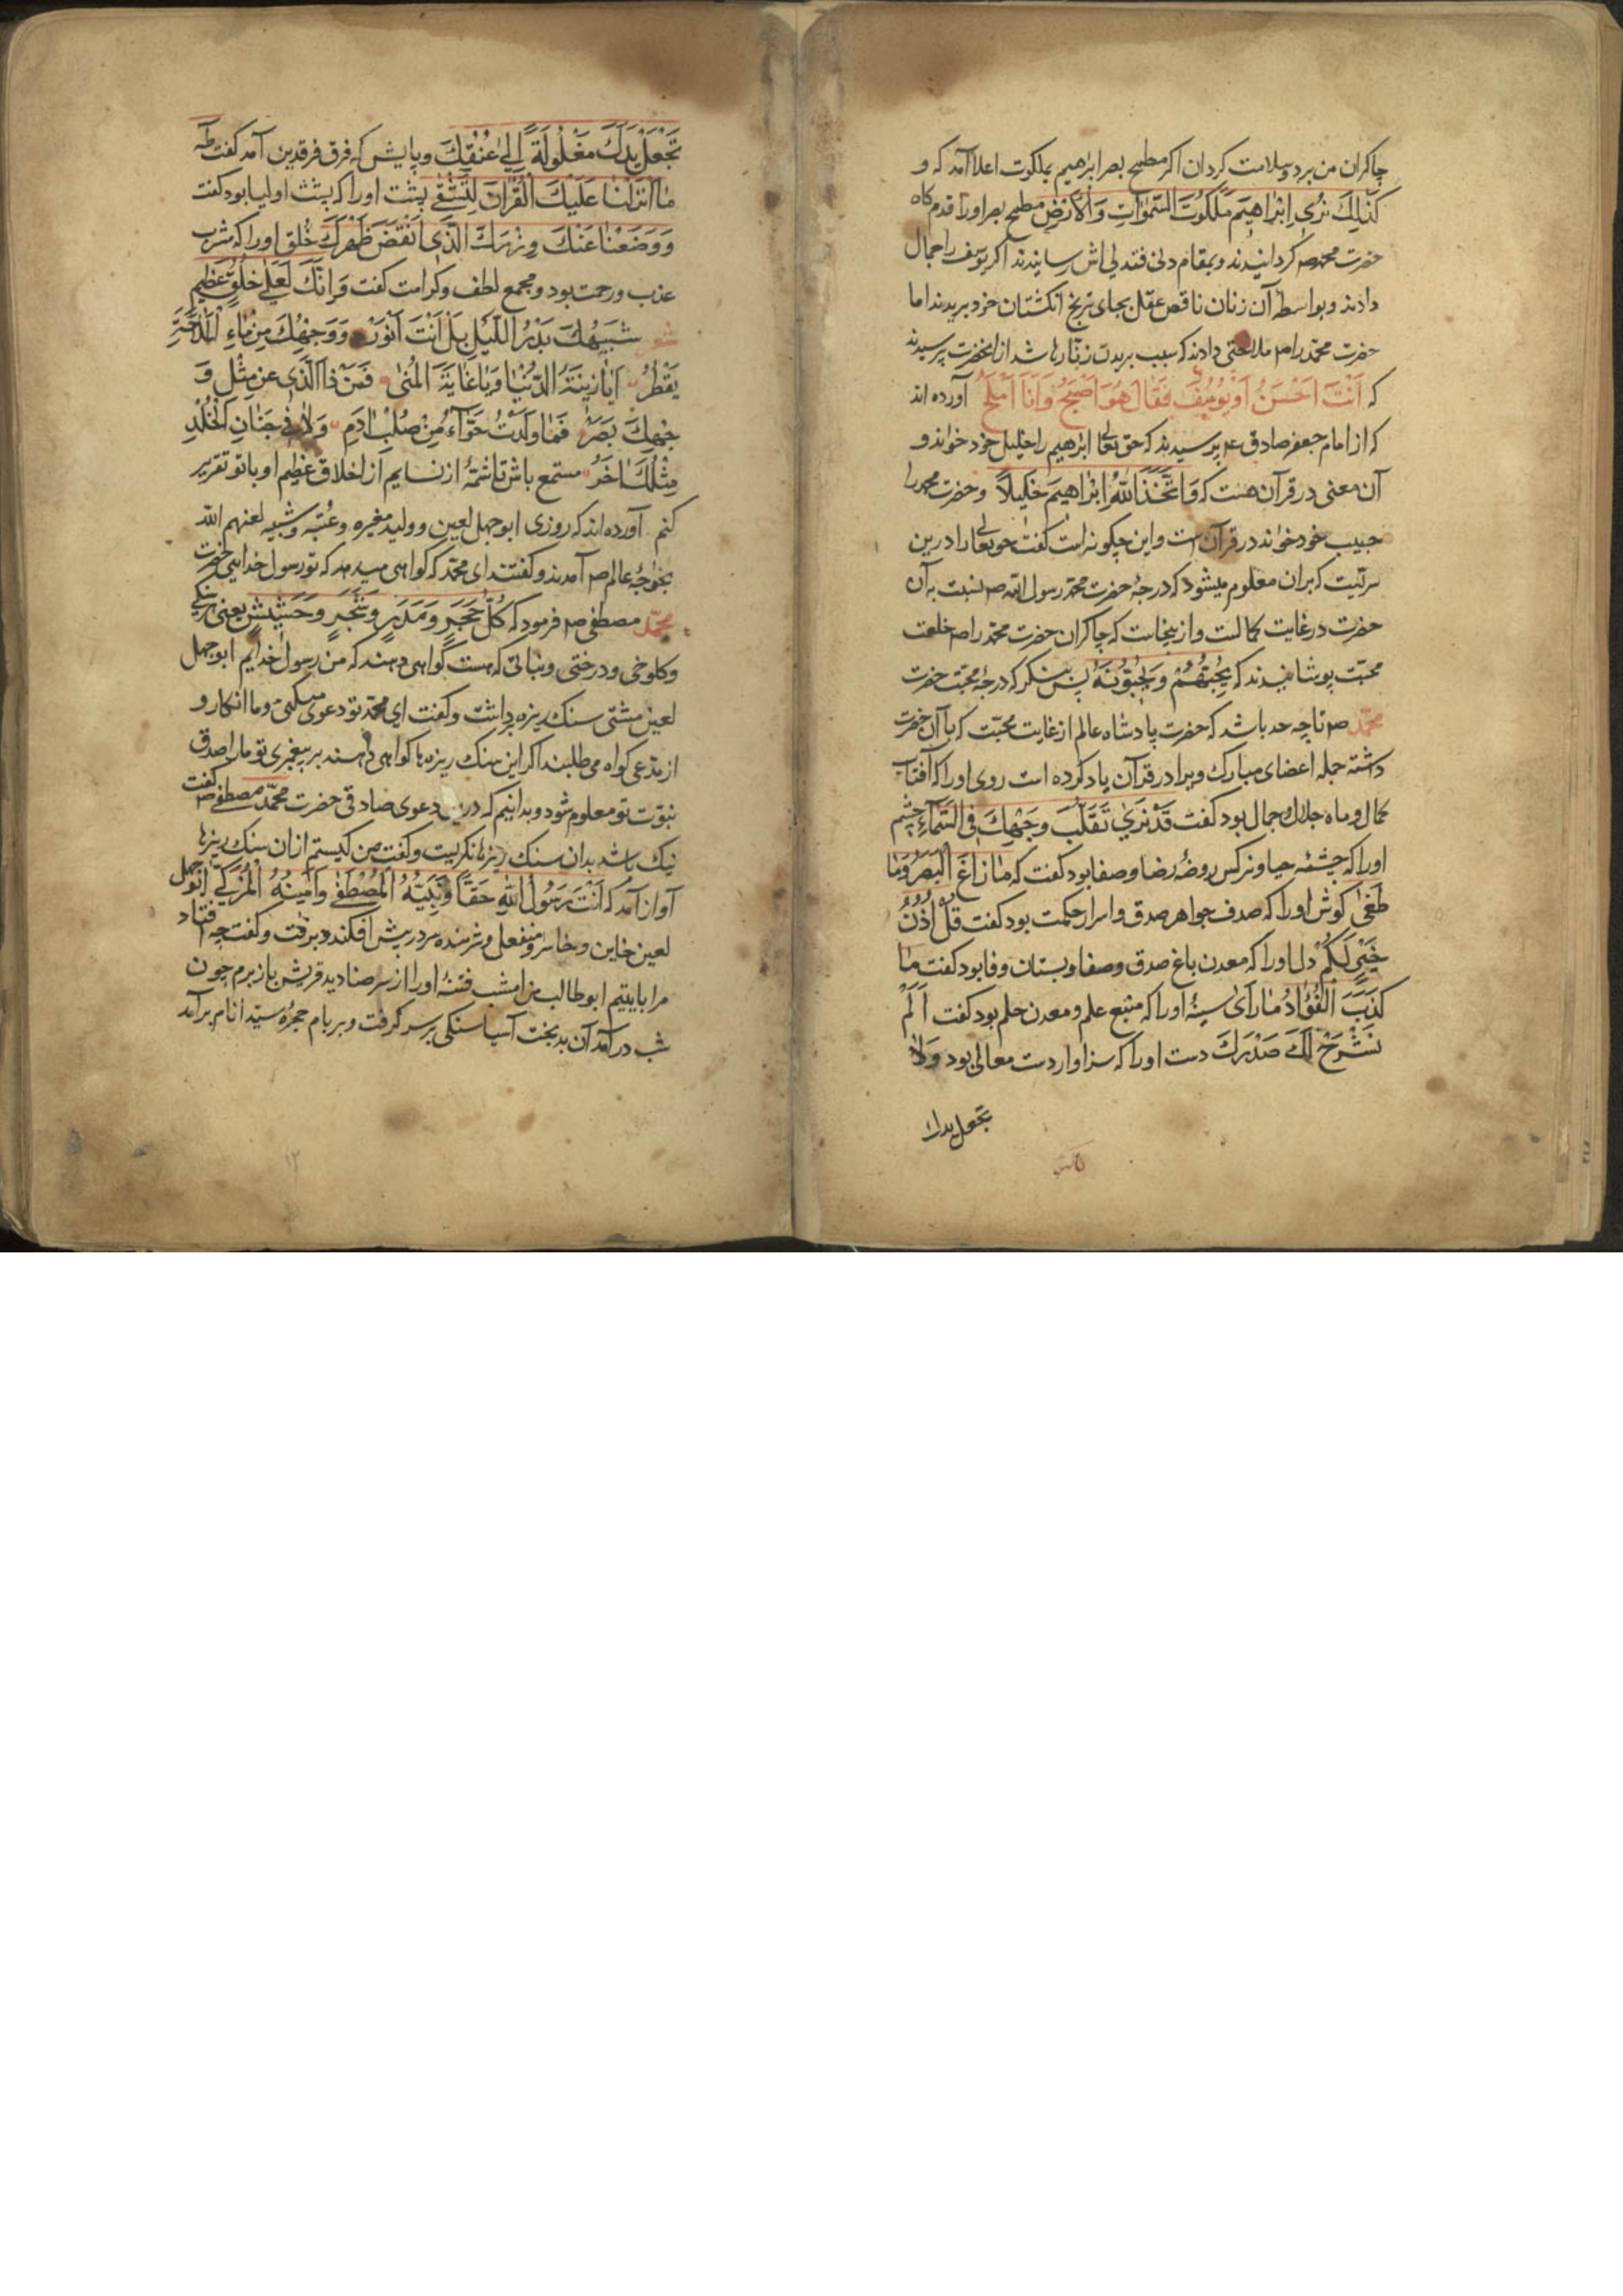 چاکران من برد و سلامت کردان اکر مطمح بصر ابرهیم بملکوت اعلا آمد که و
کَذٰلِكَ نُرِی اِبْرٰاهِیمَ مَلَکُوتَ السَّمٰوٰاتِ وَالْاَرْضِ مطمح بصر اورا قدم کاه
حضرت محمد صه کردانیدند و بمقام دنی فتدلی اش رسانیدند اکر یوسف را جمال
دادند و بواسطه آن زنان ناقص عقل بجای ترنج انکشتان خود بریدند اما
حضرت محمد را صم ملاحتی دادند که سبب بریدن زنّارها شد از انحضرت پرسیدند
که اَنْتَ اَحْسَنُ اَوْ یُوسُفَ فَقٰالَ هُوَ اَصْبَحُ وَاَنَا اَمْلَحُ آورده اند
که از امام جعفر صادق ع پرسیدند که حق تعالی ابرهیم را خلیل خود خواند و
آن معنی در قرآن هست که وَاتَّخَذَ اللّٰهُ اِبْرٰاهِیمَ خَلِیلاً و حضرت محمد را
حبیب خود خواند در قرآن است و این چکونه است کفت حق تعالی را درین
سرّیست که بران معلوم میشود که درجۀ حضرت محمد رسول الله صم نسبت به آن
حضرت در غایت کمالست و ازینجاست که چاکران حضرت محمد را صم خلعت
محبّت پوشانیدند که یُحِبُّهُمْ وَیُحِبُّونَهُ پس بنکر که درجۀ محبّت حضرت
محمّد صم تا چه حد باشد که حضرت پادشاه عالم از غایت محبّت که با آن حضرت
داشته جمله اعضای مبارك ویرا در قرآن یاد کرده است روی اورا که آفتاب
کمال و ماه جلال و جمال بود کفت قَدْ نَرٰی تَقَلُّبَ وَجْهِكَ فِی السَّمٰآءِ چشم
اورا که چشمۀ حیا و نرکس روضۀ رضا و صفا بود کفت که مٰا زٰاغَ الْبَصَرُ وَمٰا
طَغٰی کوش اورا که صدف جواهر صدق و اسرار حکمت بود کفت قُلْ اُذُنُ
خَیْرٍ لَکُمْ دل اورا که معدن باغ صدق و صفا و بستان وفا بود کفت مٰا
کَذَبَ الْفُؤٰادُ مٰا رَاٰی سینۀ اورا که منبع علم و معدن حلم بود کفت اَلَمْ
نَشْرَحْ لَكَ صَدْرَكَ دست اورا که سزاوار دست معالی بود وَلاٰ
تجعل یدك
تَجْعَلْ یَدَكَ مَغْلُولَةً اِلٰی عُنُقِكَ و پایش که فرق فرقدین آمد کفت طٰه
مٰا اَنْزَلْنٰا عَلَیْكَ الْقُرْاٰنَ لِتَشْقٰی پشت اورا که پشت اولیا بود کفت
وَوَضَعْنٰا عَنْكَ وِزْرَكَ الَّذِی اَنْقَضَ ظَهْرَكَ خُلق اورا که مشرب
عذب و رحمت بود و مجمع لطف و کرامت کفت وَاِنَّكَ لَعَلٰی خُلُقٍ عَظِیمٍ
شعر شَبِیهُكَ بَدْرُ اللَّیْلِ بَلْ اَنْتَ اَنْوَرُ وَوَجْهُكَ مِنْ مٰاءِ الْمَلاٰحَةِ
یَقْطُرُ اَیٰا زِینَةَ الدُّنْیٰا وَیٰا غٰایَةَ الْمُنٰی فَمَنْ ذَا الَّذِی عَنْ مِثْلِ وَ
جْهِكَ یَصْبِرُ فَمٰا وَلَدَتْ حَوّٰآءُ مِنْ صُلْبِ اٰدَمٍ وَلاٰ فِی جِنٰانِ الْخُلْدِ
مِثْلُكَ اٰخَرُ مستمع باش تا شمّۀ از نسایم از اخلاق عظیم او با تو تقریر
کنم آورده اند که روزی ابوجهل لعین و ولید مغیره و عُتبه و شیبه لعنهم الله
بخواجۀ عالم صم آمدند و کفتند ای محمّد که کواهی میدهد که تو رسول خدایی حضرت
محمّد مصطفی صم فرمود که کُلُّ حَجَرٍ وَمَدَرٍ وَشَجَرٍ وَحَشِیشٍ یعنی هر سنکی
و کلوخی و درختی و نباتی که هست کواهی دهند که من رسول خدایم ابوجهل
لعین مشتی سنك ریزه برداشت و کفت ای محمّد تو دعوی میکنی و ما انکار و
از مدّعی کواه می طلبند اکر این سنك ریزه ها کواهی دهند بر پیغمبری تو مارا صدق
نبوّت تو معلوم شود و بدانیم که درین دعوی صادقی حضرت محمّد مصطفی صم کفت
نیك باشد بدان سنك ریزها نکریست و کفت من کیستم ازان سنك ریزها
آواز آمد که اَنْتَ رَسُولُ اللّٰهِ حَقّاً وَنَبِیُّهُ الْمُصْطَفٰی وَاَمِینُهُ الْمُزَکّٰی ابوجهل
لعین خاین و خاسر و منفعل و شرمنده سر در پیش افکند و برفت و کفت چه افتاد
مرا با یتیم ابوطالب من امشب فتنۀ اورا از سر صنادید قریش باز برم چون
شب درآمد آن بدبخت آسیا سنکی بر سر کرفت و بر بام حجرۀ سیّد انام برآمد
۱۲